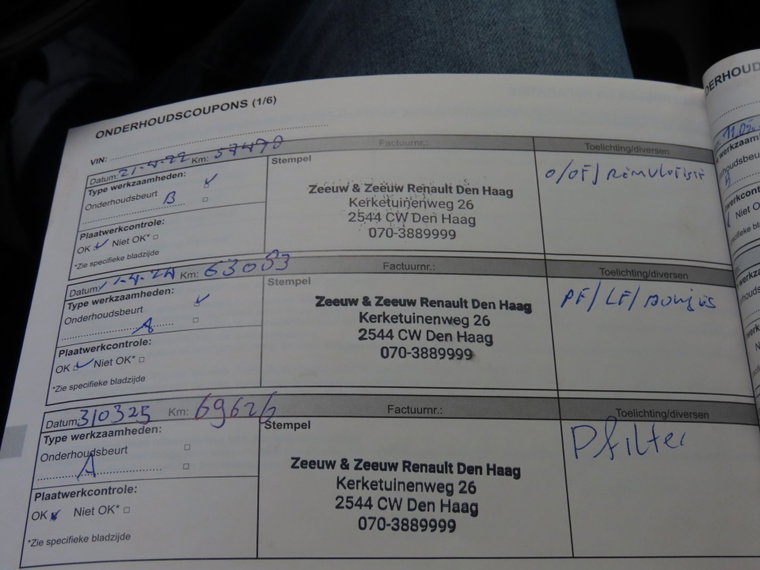 ONDERHOUDSCOUPONS (1/6)
VIN:
Datum: 21-4-22 Km: 57490 Factuurnr.: Toelichting/diversen
Type werkzaamheden:
Onderhoudsbeurt B
Plaatwerkcontrole:
OK Niet OK*
*Zie specifieke bladzijde
Stempel
Zeeuw & Zeeuw Renault Den Haag
Kerketuinenweg 26
2544 CW Den Haag
070-3889999
O/OF/
Datum: Km: 63083 Factuurnr.: Toelichting/diversen
Type werkzaamheden:
Onderhoudsbeurt
A
Plaatwerkcontrole:
OK Niet OK*
*Zie specifieke bladzijde
Stempel
Zeeuw & Zeeuw Renault Den Haag
Kerketuinenweg 26
2544 CW Den Haag
070-3889999
PF/LF/Bougies
Datum: 310325 Km: 69626 Factuurnr.: Toelichting/diversen
Type werkzaamheden:
Onderhoudsbeurt
A
Plaatwerkcontrole:
OK Niet OK*
*Zie specifieke bladzijde
Stempel
Zeeuw & Zeeuw Renault Den Haag
Kerketuinenweg 26
2544 CW Den Haag
070-3889999
Pfilter